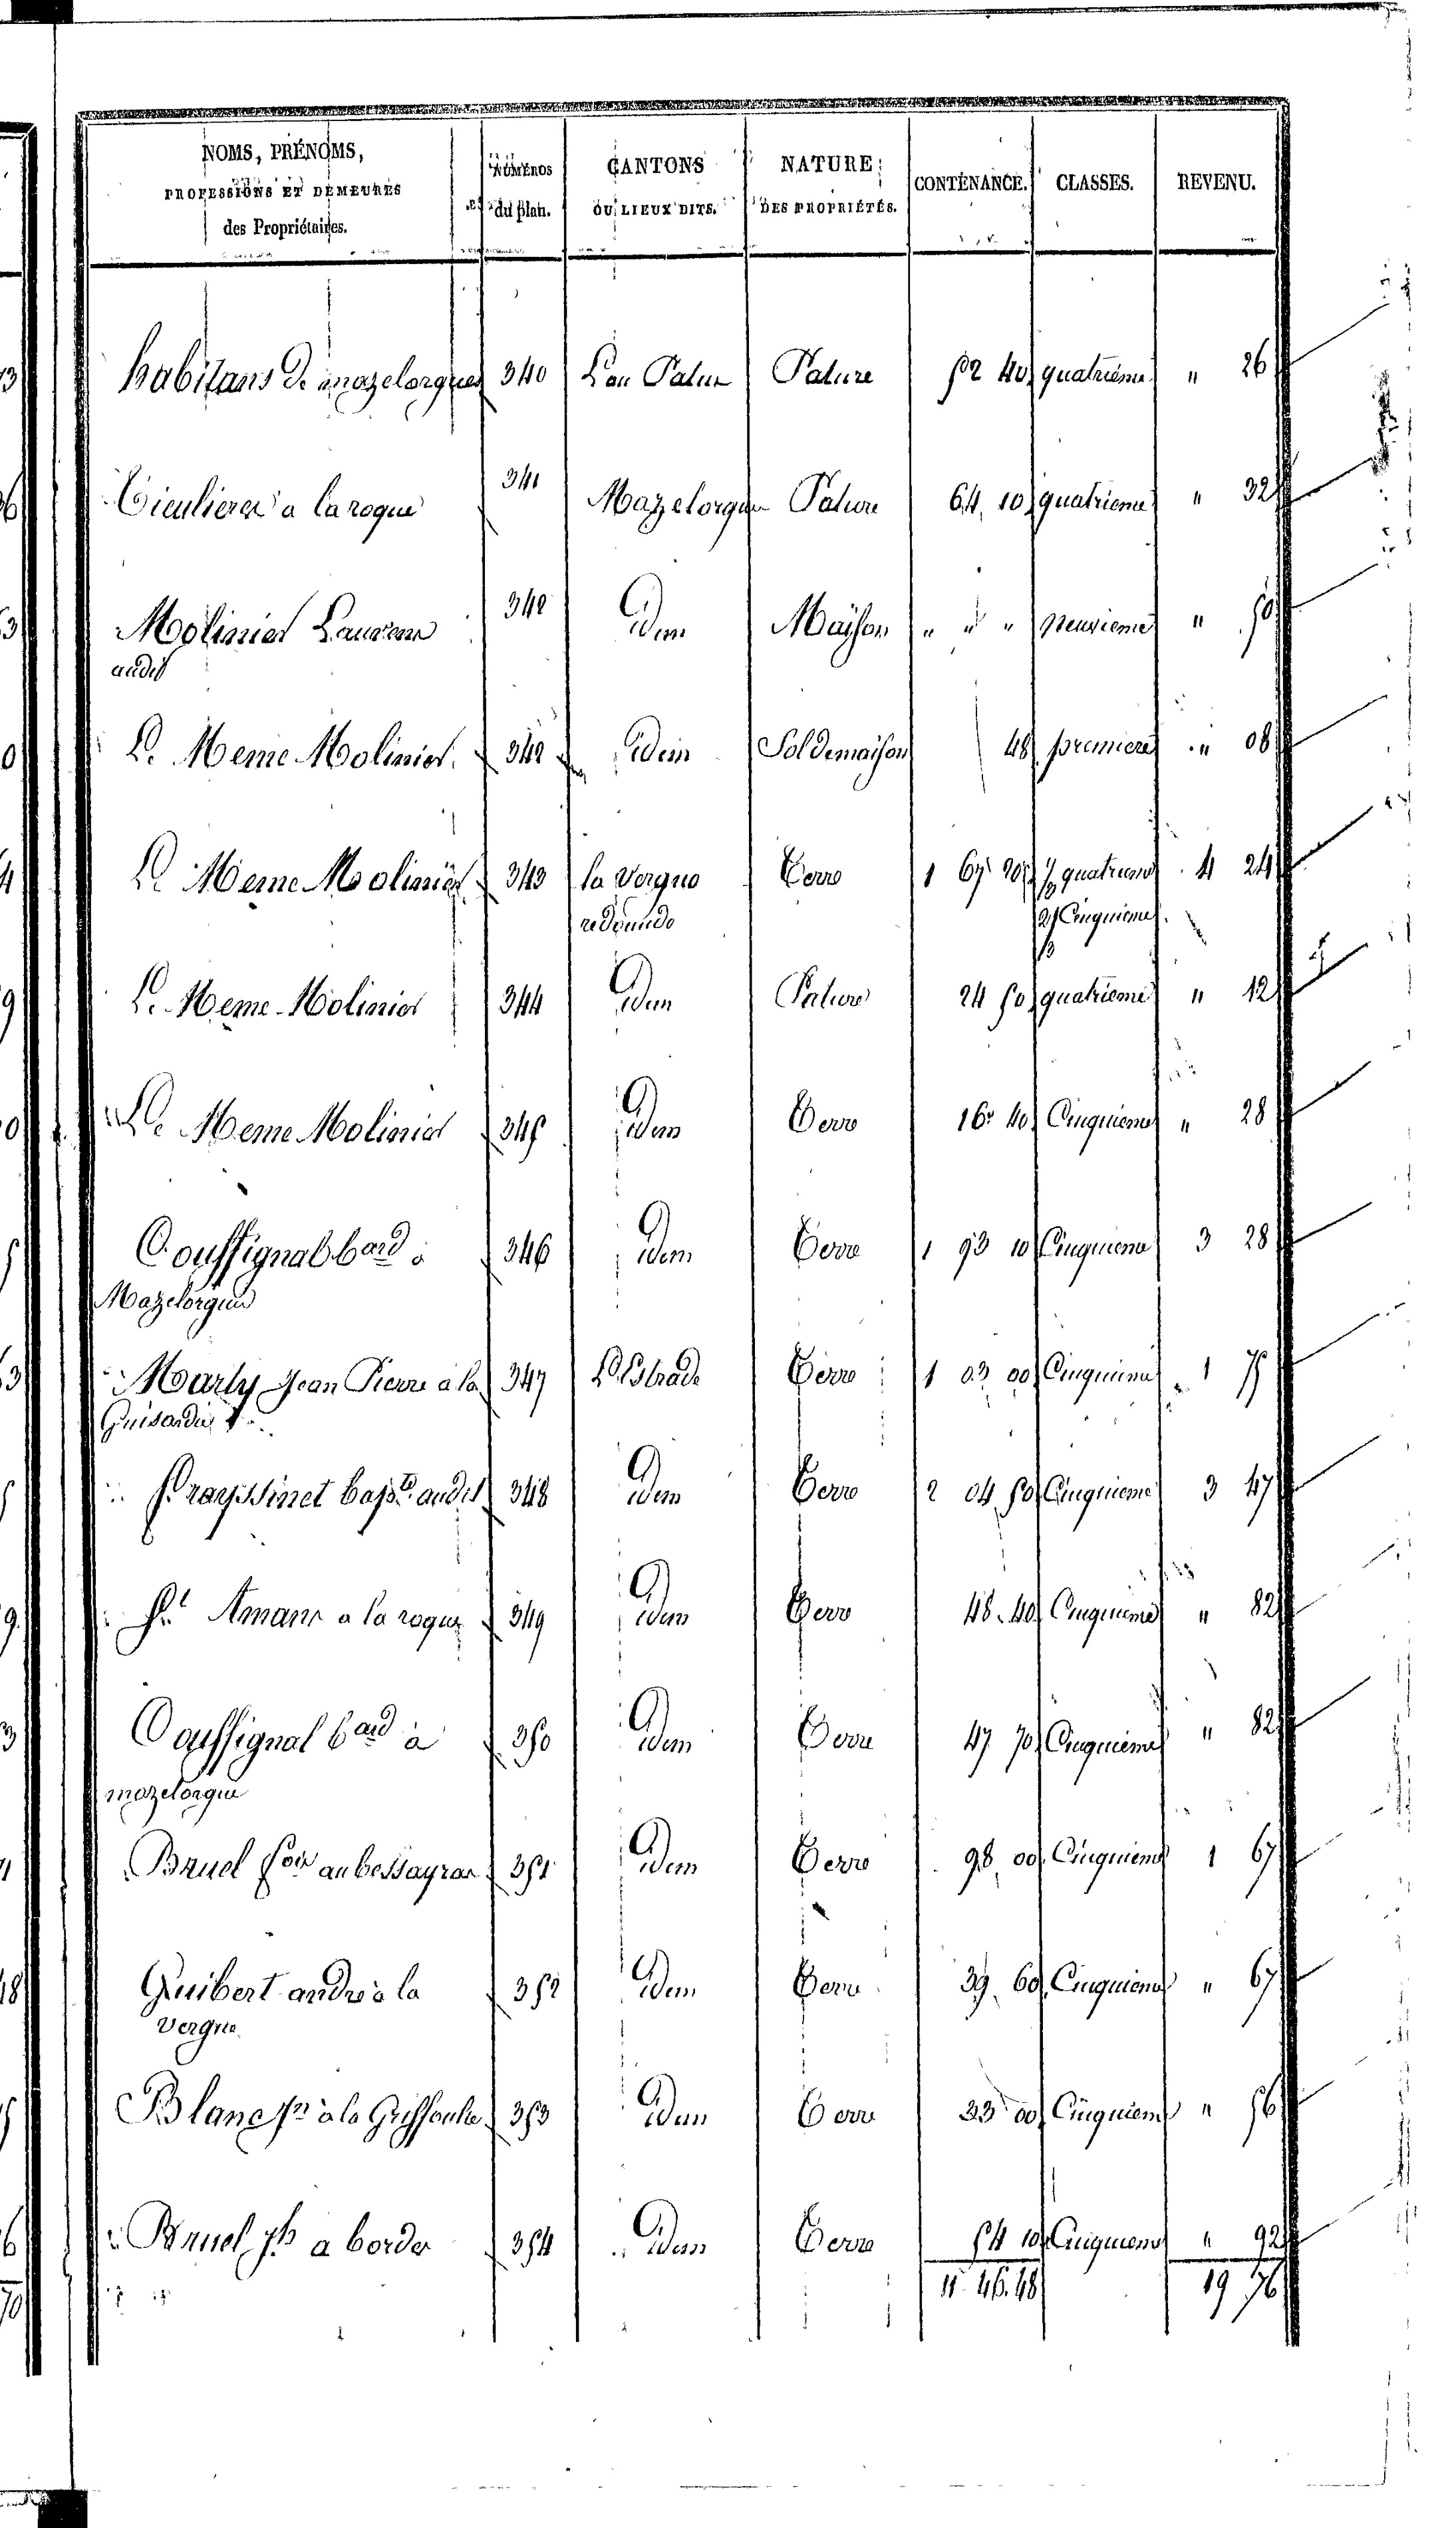 NOMS, PRÉNOMS, PROFESSIONS ET DEMEURES des Propriétaires. | NUMÉROS du plan. | CANTONS OU LIEUX DITS. | NATURE DES PROPRIÉTÉS. | CONTENANCE. | CLASSES. | REVENU.
habitans de mazelorgues 340 Lou Patus Pature 52 40 quatrieme " 26
a la roque 341 Mazelorgues Pature 64 10 quatrieme " 32
Molinier Laurens 342 idem Maison " " " neuvieme " 50
audit
Le Meme Molinier 342 idem Sol de maison 48 premiere " 08
Le Meme Molinier 343 la vergne Terre 1 67 20 1/3 quatrieme 4 24
redounde 2/3 Cinquieme
Le Meme Molinier 344 idem Pature 24 50 quatrieme " 12
Le Meme Molinier 345 idem Terre 16 40 Cinquieme " 28
Couffignal bard à 346 idem Terre 1 93 10 Cinquieme 3 28
Mazelorgues
Marty Jean Pierre à la 347 L'Estrade Terre 1 03 00 Cinquieme 1 75
Guisardie
frayssinet bapte audit 348 idem Terre 2 04 50 Cinquieme 3 47
St Amans a la roque 349 idem Terre 48 40 Cinquieme " 82
Couffignal bard à 350 idem Terre 47 70 Cinquieme " 82
mazelorgue
Bruel fois au bessayrac 351 idem Terre 98 00 Cinquieme 1 67
Guibert andré à la 352 idem Terre 39 60 Cinquieme " 67
vergne
Blanc à la Griffoulie 353 idem Terre 33 00 Cinquieme " 56
Bruel jh a borde 354 idem Terre 54 10 Cinquieme " 92
11 46.48 19 76